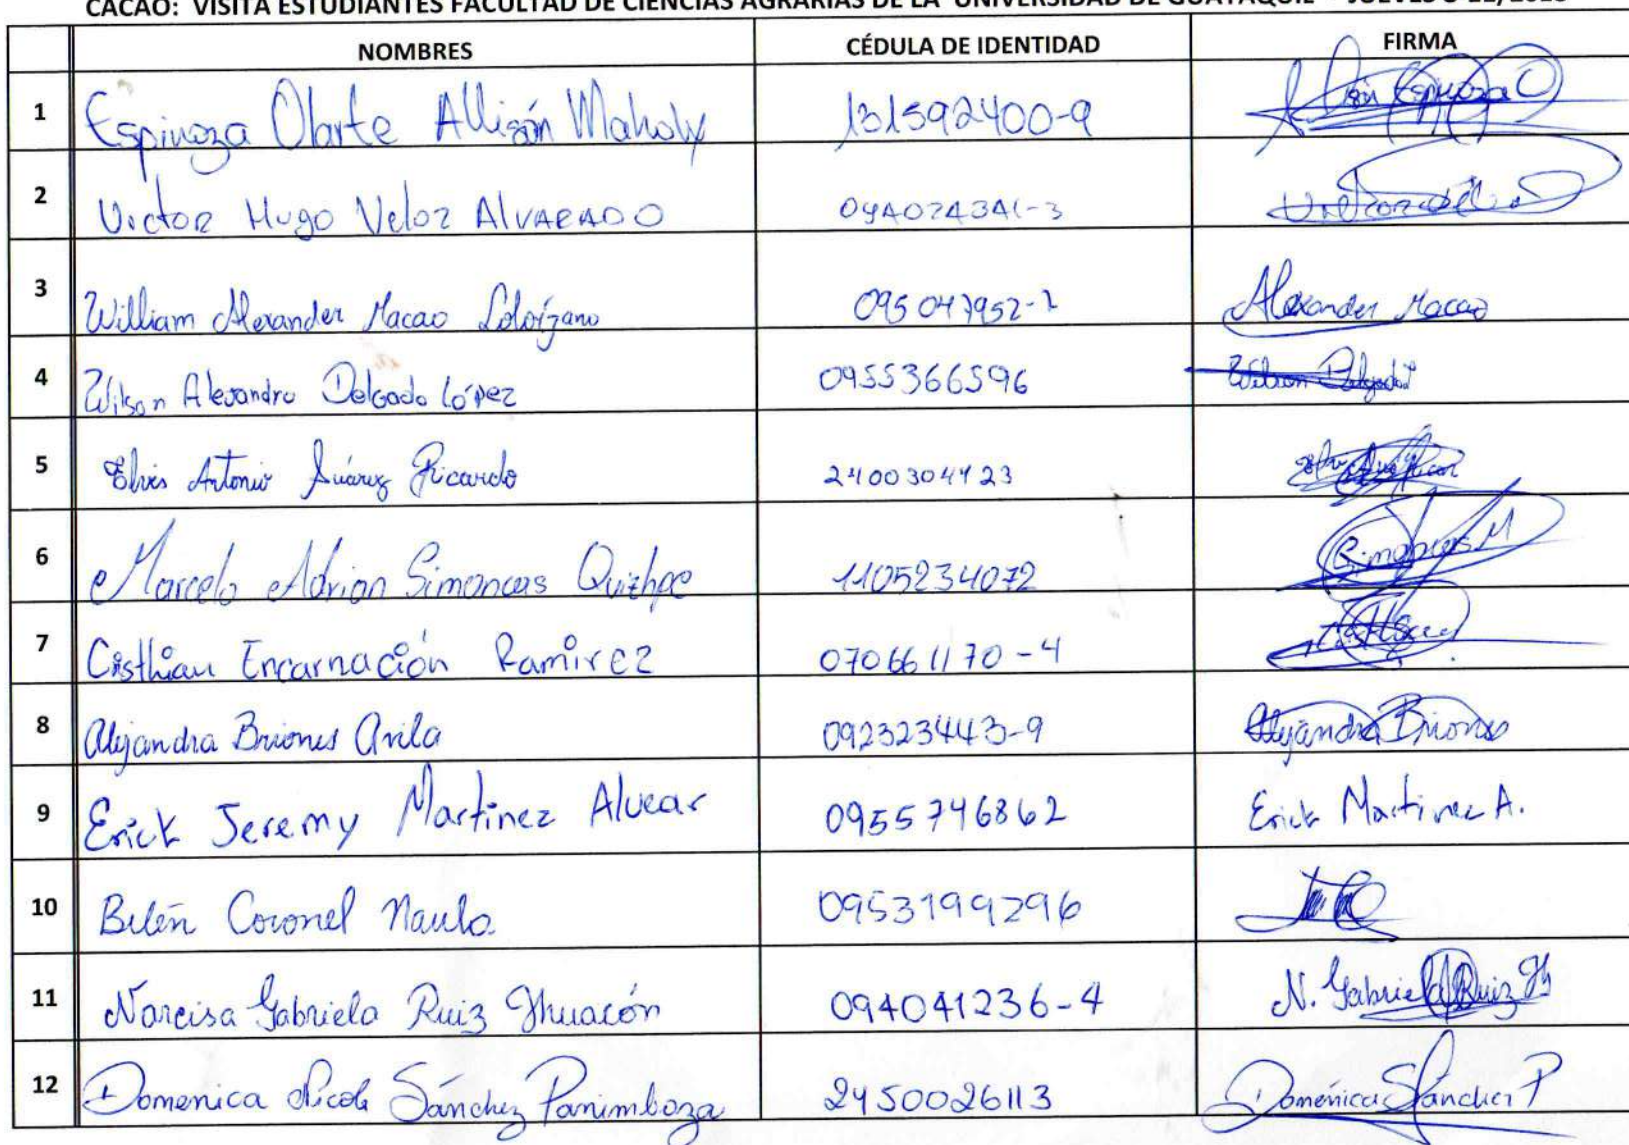 CACAO: VISITA ESTUDIANTES FACULTAD DE CIENCIAS AGRARIAS DE LA UNIVERSIDAD DE GUAYAQUIL - JUEVES
NOMBRES CÉDULA DE IDENTIDAD FIRMA
1 Espinoza Olarte Allisón Maholy 131592400-9
2 Victor Hugo Veloz ALVARADO 094024341-3
3 William Alexander Macao 095047952-1 Alexander Macao
4 Wilson Alexandro Delgado López 0955366596 Wilson Delgado
5 Elvis Antonio Suárez Ricardo 2400304423
6 Marcelo Adrian Simancas Quizhpe 1105234072 Simancas M
7 Cristhian Encarnación Ramirez 070661170-4
8 Alejandra Briones Avila 092323443-9 Alejandra Briones
9 Erick Jeremy Martinez Alvear 0955746862 Erick Martinez A.
10 Belén Coronel Naula 0953199296
11 Narcisa Gabriela Ruiz 094041236-4 N. Gabriela Ruiz
12 Domenica Nicole Sánchez Panimboza 2450026113 Doménica Sánchez P